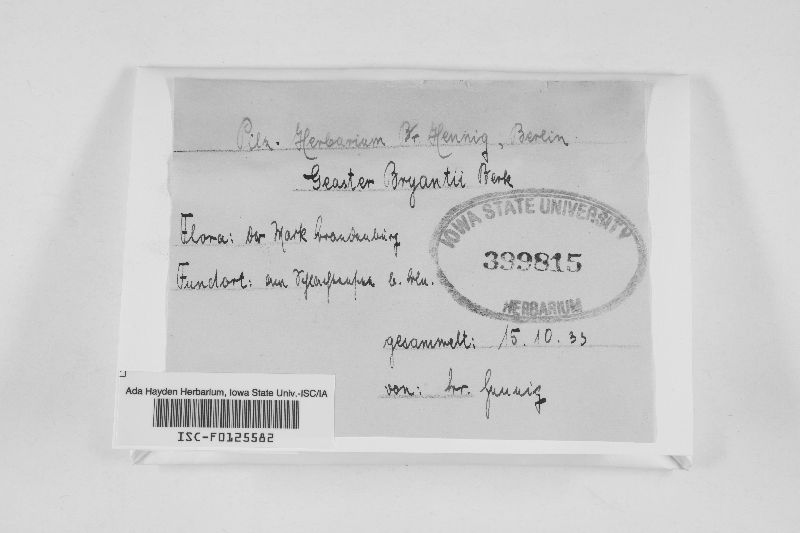 Pilz-Herbarium Br Hennig, Berlin.
Geaster Bryantii Berk
Flora: der Mark Brandenburg
Fundort: am Schlachtensee b. Bln.
gesammelt: 15. 10. 33
von: br. Hennig
IOWA STATE UNIVERSITY
339815
HERBARIUM
Ada Hayden Herbarium, Iowa State Univ.-ISC/IA
ISC-F0125582